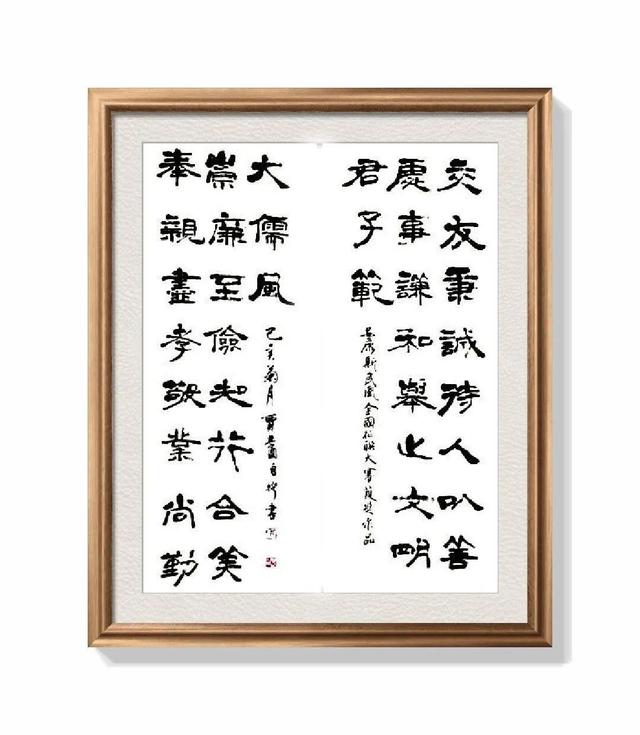 交友秉誠待人以善
處事謙和舉止文明
君子範
安康新民風全國征聯大賽獲獎作品
奉親盡孝敬業尚勤
崇廉至儉知行合美
大儒風
己亥菊月賈自撰書